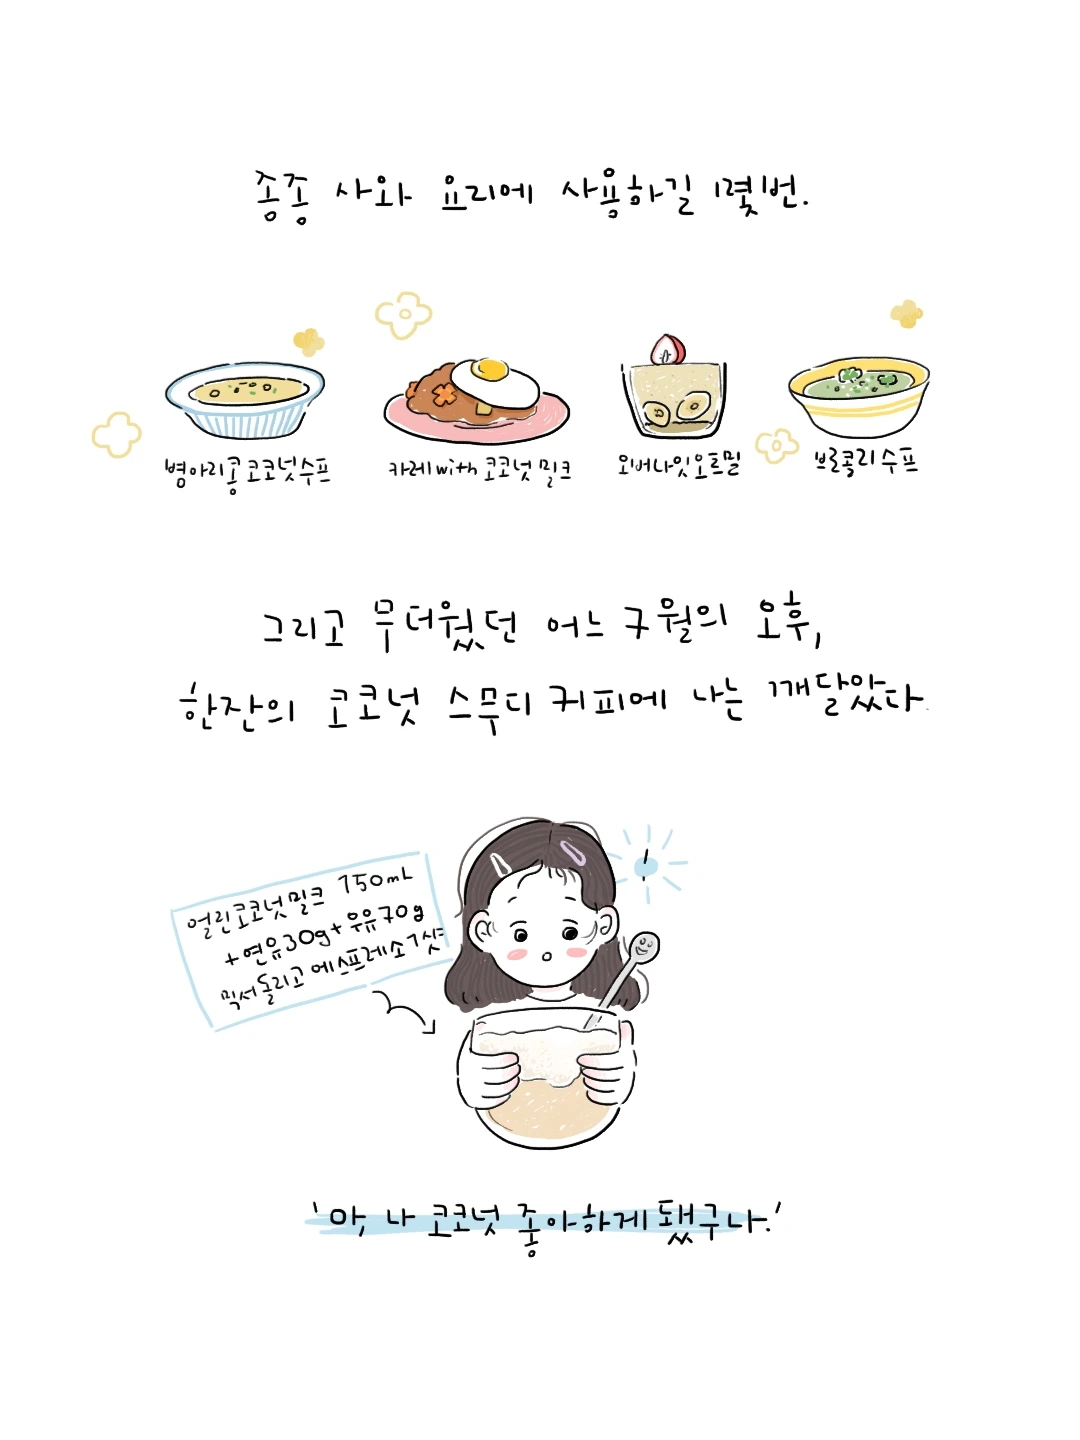 종종 사와 요리에 사용하길 몇번.
병아리콩코코넛수프
카레with코코넛밀크
오버나잇오트밀
브로콜리수프
그리고 무더웠던 어느 구월의 오후,
한잔의 코코넛 스무디 커피에 나는 깨달았다.
얼린코코넛밀크 150mL
+연유30g+우유70g
믹서돌리고에스프레소1샷
!
'앗 나 코코넛 좋아하게됐구나.'